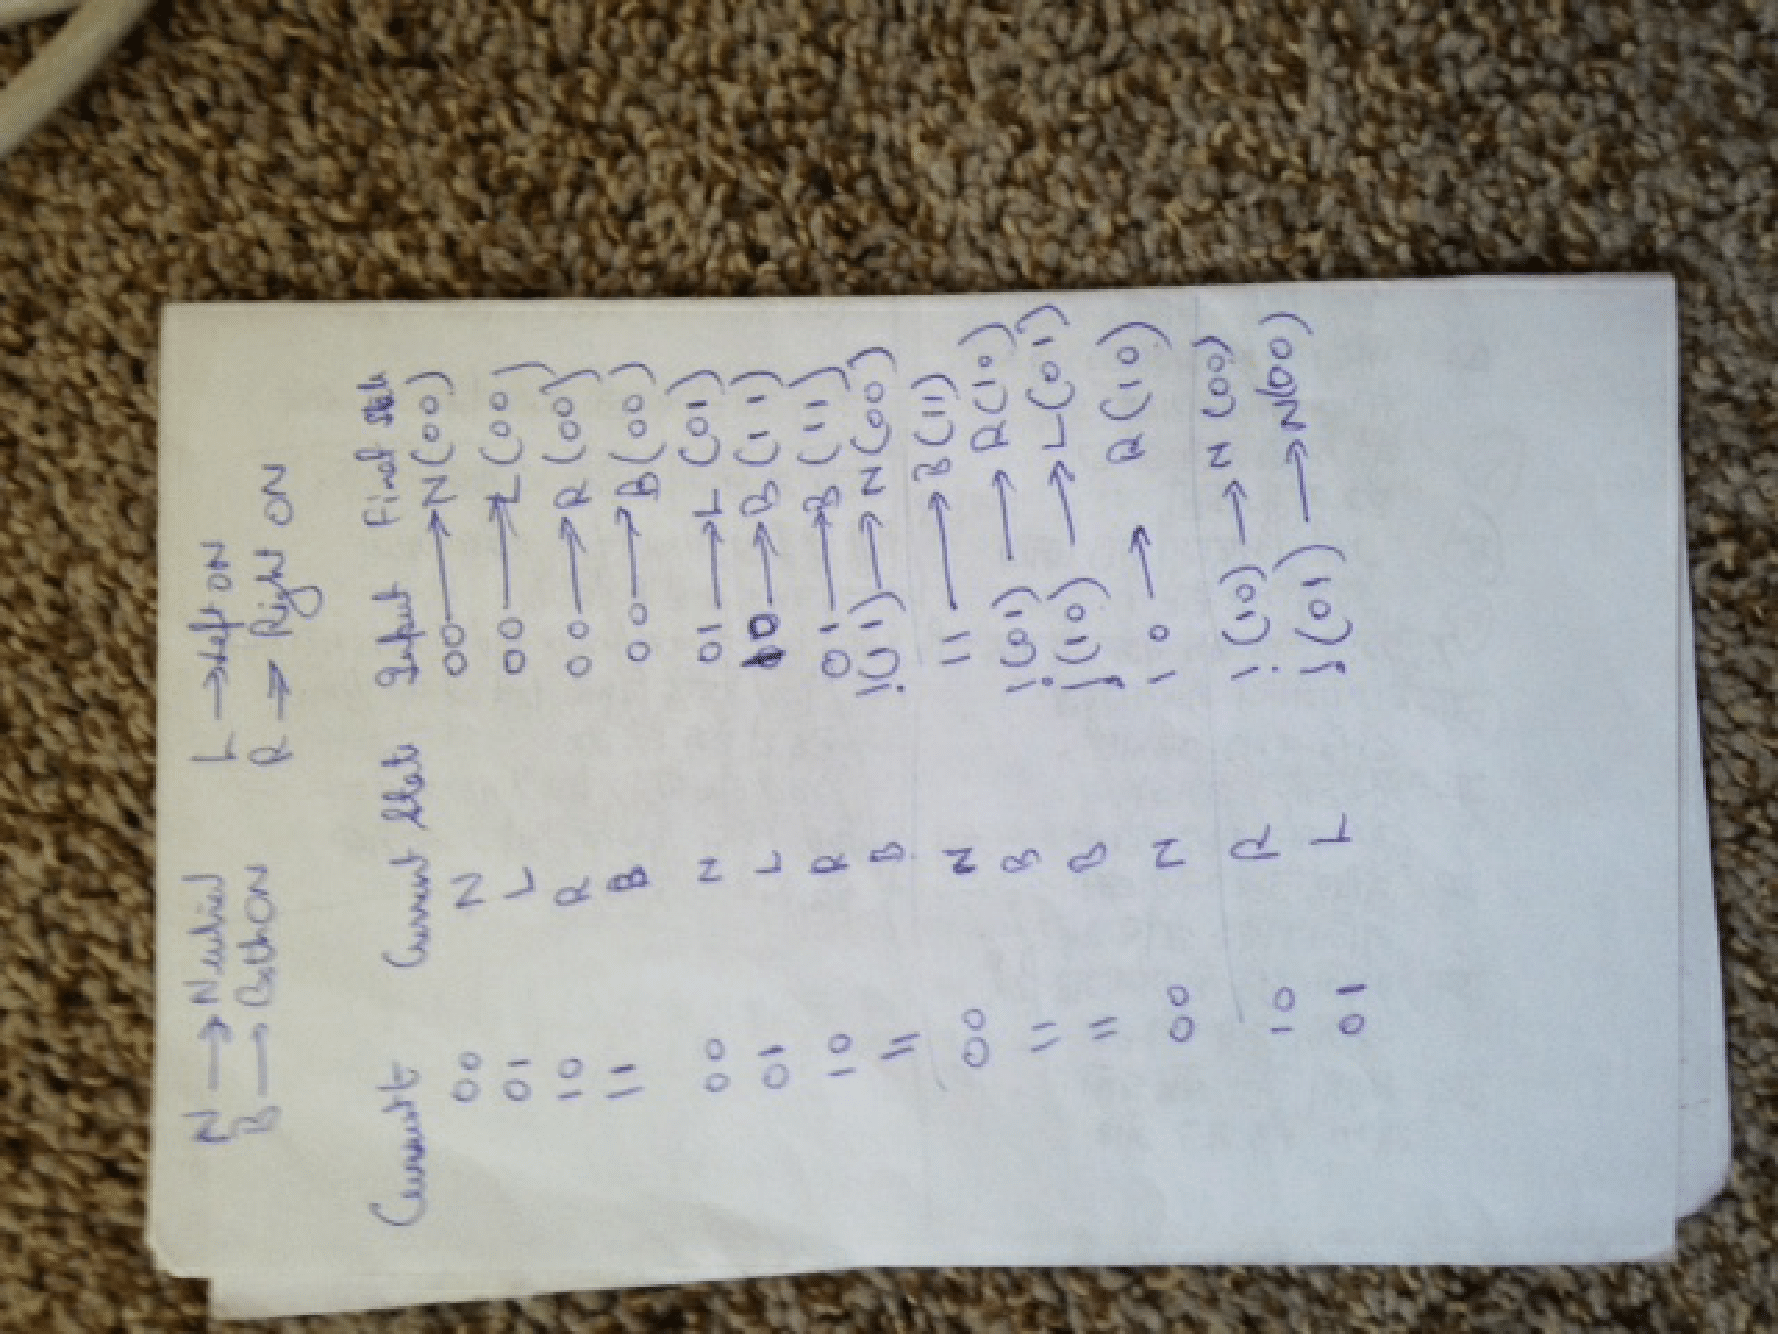 N → Neutral L → Left ON
B → Both ON R → Right ON
Current Current State Input Final State
00 N 00 → N(00)
01 L 00 → L(00)
10 R 00 → R(00)
11 B 00 → B(00)
00 N 01 → L(01)
01 L 10 → B(11)
10 R 01 → B(11)
11 B i(11) → N(00)
00 N 11 → B(11)
11 B i(01) → R(10)
11 B j(10) → L(01)
00 N 10 → R(10)
10 R i(10) → N(00)
01 L j(01) → N(00)